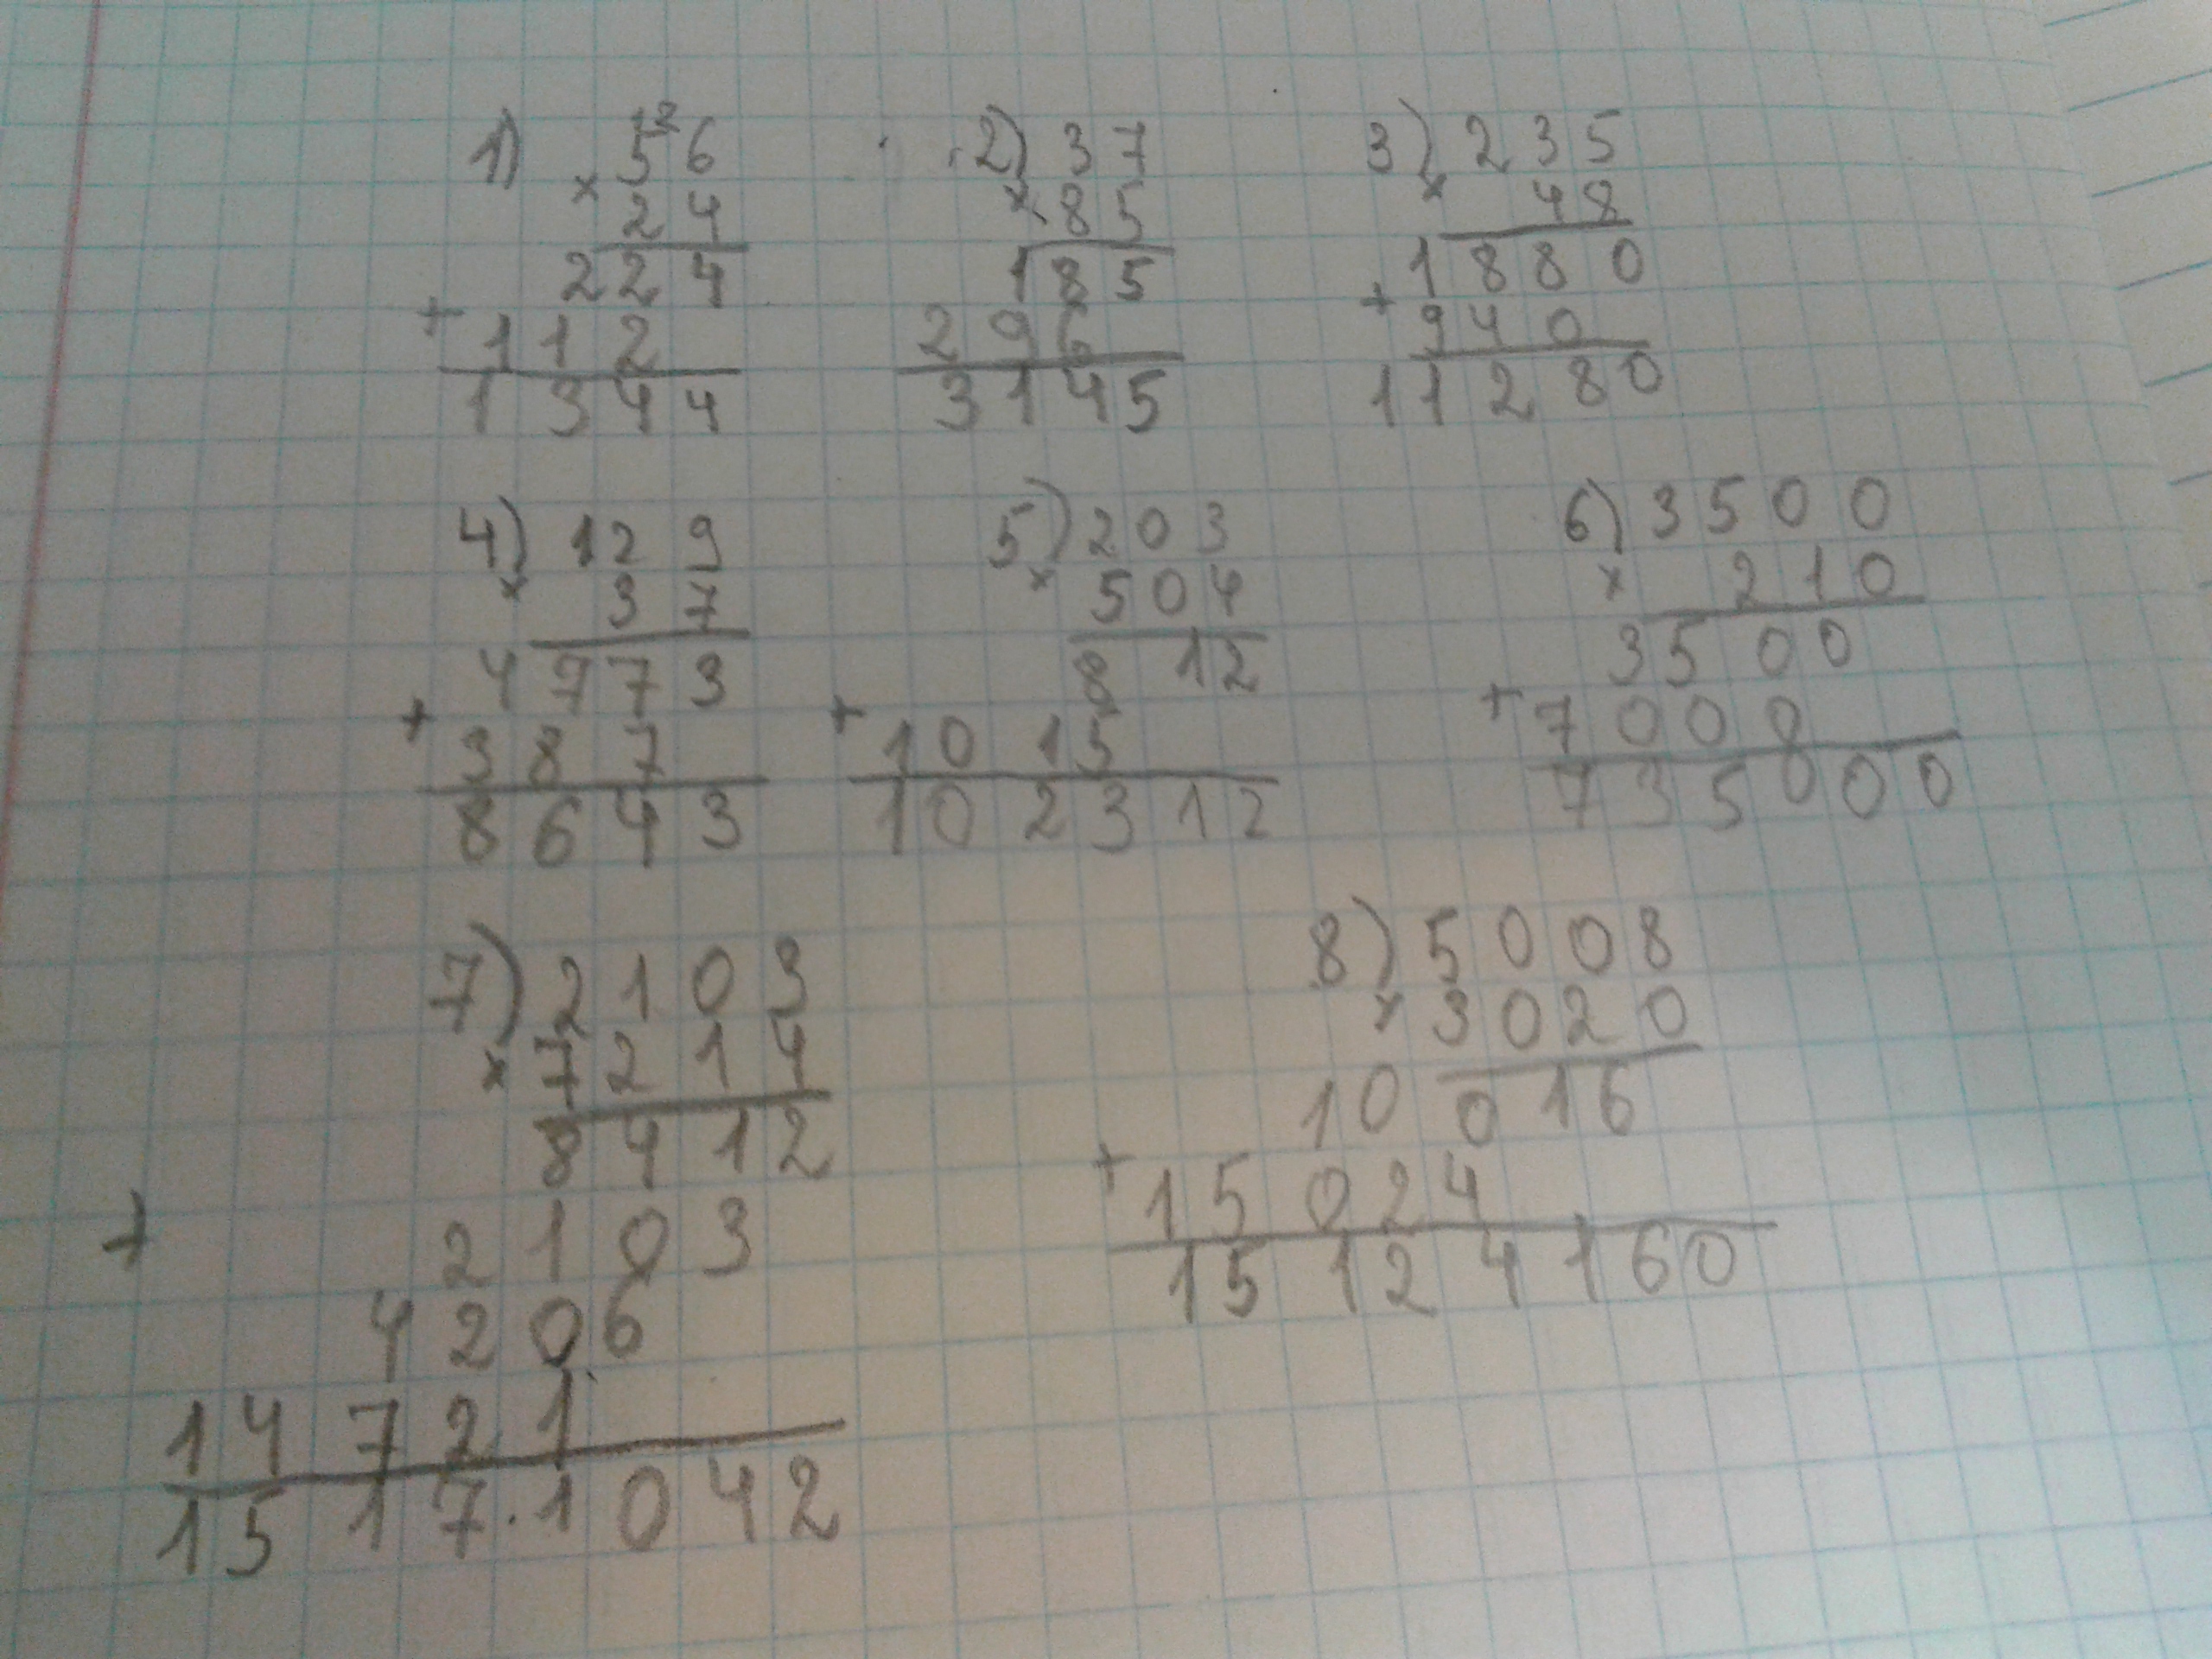 1) 56
× 24
224
+ 112
1344
2) 37
× 85
185
296
3145
3) 235
× 48
1880
+ 940
11280
4) 129
× 37
4773
+ 387
8643
5) 203
× 504
812
+ 1015
102312
6) 3500
× 210
3500
+ 7000
735000
7) 2103
× 7214
8412
+ 2103
4206
14721
1517.1042
8) 5008
× 3020
10016
+ 15024
15124160